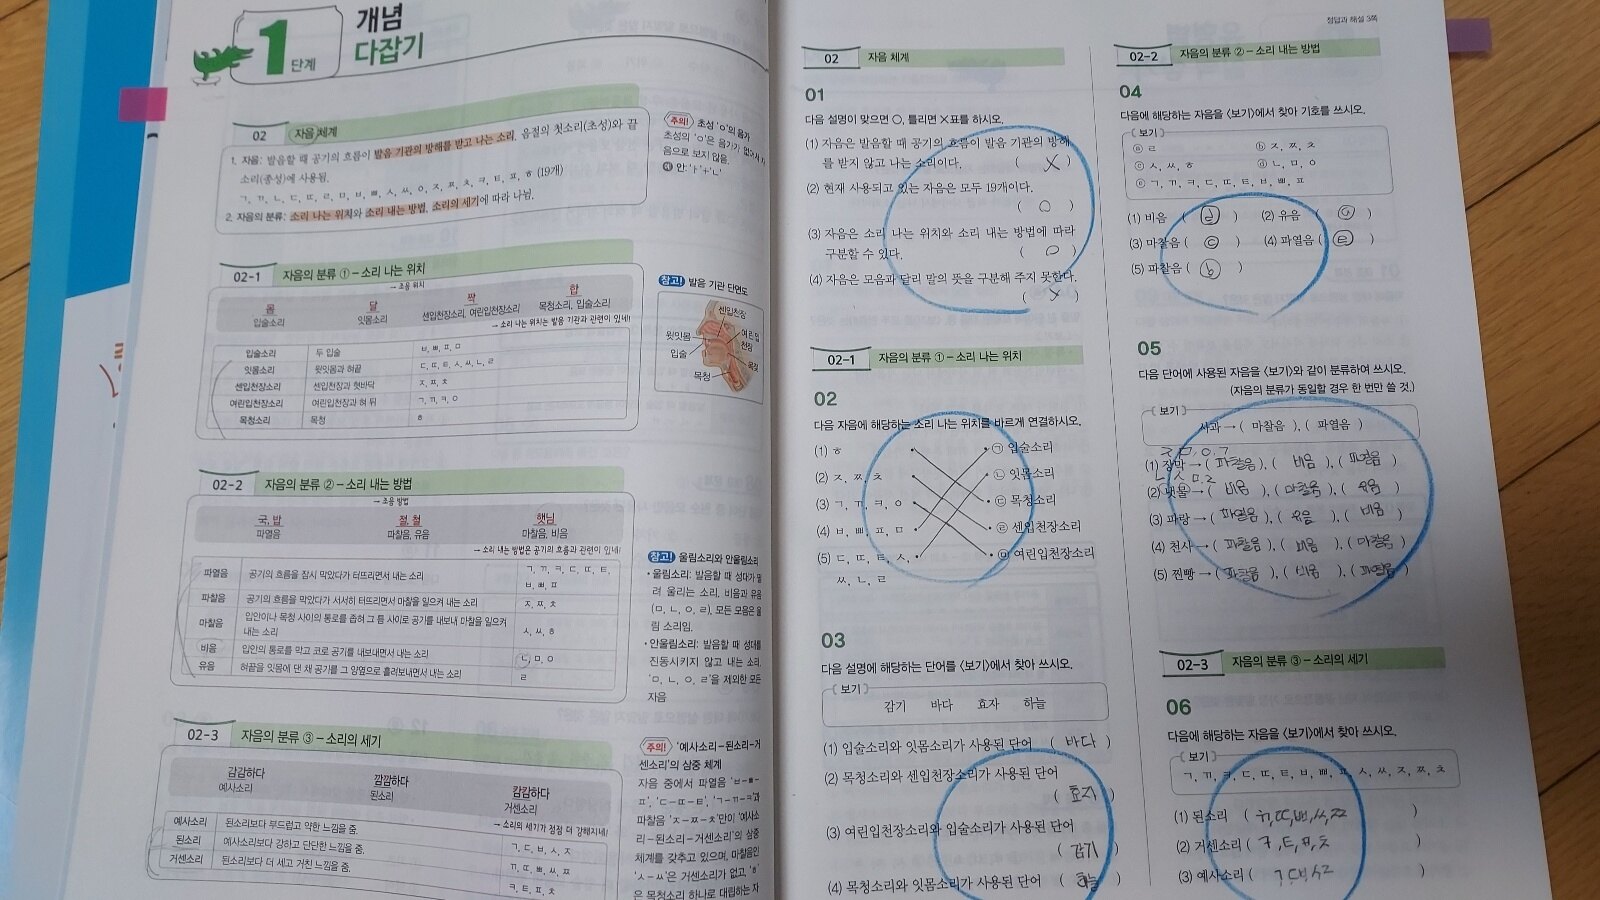 1
단계
개념
다잡기
02 자음 체계
1. 자음: 발음할 때 공기의 흐름이 발음 기관의 방해를 받고 나는 소리. 음절의 첫소리(초성)와 끝
소리(종성)에 사용됨.
ㄱ, ㄲ, ㄴ, ㄷ, ㄸ, ㄹ, ㅁ, ㅂ, ㅃ, ㅅ, ㅆ, ㅇ, ㅈ, ㅉ, ㅊ, ㅋ, ㅌ, ㅍ, ㅎ (19개)
2. 자음의 분류: 소리 나는 위치와 소리 내는 방법, 소리의 세기에 따라 나뉨.
주의! 초성 'ㅇ'의 음가
초성의 'ㅇ'은 음가가 없어서 자
음으로 보지 않음.
예 안: 'ㅏ'+'ㄴ'
02-1 자음의 분류 ① – 소리 나는 위치
→ 조음 위치
몸 달 짝 합
입술소리 잇몸소리 센입천장소리, 여린입천장소리 목청소리, 입술소리
→ 소리 나는 위치는 발음 기관과 관련이 있네!
입술소리 두 입술 ㅂ, ㅃ, ㅍ, ㅁ
잇몸소리 윗잇몸과 혀끝 ㄷ, ㄸ, ㅌ, ㅅ, ㅆ, ㄴ, ㄹ
센입천장소리 센입천장과 혓바닥 ㅈ, ㅉ, ㅊ
여린입천장소리 여린입천장과 혀 뒤 ㄱ, ㄲ, ㅋ, ㅇ
목청소리 목청 ㅎ
참고! 발음 기관 단면도
센입천장
윗잇몸
여린입
천장
입술
목젖
목청
02-2 자음의 분류 ② – 소리 내는 방법
→ 조음 방법
국, 밥 절, 철 햇님
파열음 파찰음, 유음 마찰음, 비음
→ 소리 내는 방법은 공기의 흐름과 관련이 있네!
파열음 공기의 흐름을 잠시 막았다가 터뜨리면서 내는 소리 ㄱ, ㄲ, ㅋ, ㄷ, ㄸ, ㅌ,
ㅂ, ㅃ, ㅍ
파찰음 공기의 흐름을 막았다가 서서히 터뜨리면서 마찰을 일으켜 내는 소리 ㅈ, ㅉ, ㅊ
마찰음 입안이나 목청 사이의 통로를 좁혀 그 틈 사이로 공기를 내보내 마찰을 일으켜
내는 소리 ㅅ, ㅆ, ㅎ
비음 입안의 통로를 막고 코로 공기를 내보내면서 내는 소리 ㄴ, ㅁ, ㅇ
유음 혀끝을 잇몸에 댄 채 공기를 그 양옆으로 흘려보내면서 내는 소리 ㄹ
참고! 울림소리와 안울림소리
• 울림소리: 발음할 때 성대가 떨
려 울리는 소리. 비음과 유음
(ㅁ, ㄴ, ㅇ, ㄹ), 모든 모음은 울
림 소리임.
• 안울림소리: 발음할 때 성대를
진동시키지 않고 내는 소리.
'ㅁ, ㄴ, ㅇ, ㄹ'을 제외한 모든
자음
02-3 자음의 분류 ③ – 소리의 세기
감감하다 깜깜하다 캄캄하다
예사소리 된소리 거센소리
→ 소리의 세기가 점점 더 강해지네!
예사소리 된소리보다 부드럽고 약한 느낌을 줌. ㄱ, ㄷ, ㅂ, ㅅ, ㅈ
된소리 예사소리보다 강하고 단단한 느낌을 줌. ㄲ, ㄸ, ㅃ, ㅆ, ㅉ
거센소리 된소리보다 더 세고 거친 느낌을 줌. ㅋ, ㅌ, ㅍ, ㅊ
주의! '예사소리–된소리–거
센소리'의 삼중 체계
자음 중에서 파열음 'ㅂ–ㅃ–
ㅍ', 'ㄷ–ㄸ–ㅌ', 'ㄱ–ㄲ–ㅋ'과
파찰음 'ㅈ–ㅉ–ㅊ'만이 '예사소
리–된소리–거센소리'의 삼중
체계를 갖추고 있으며, 마찰음인
'ㅅ–ㅆ'은 거센소리가 없고, 'ㅎ'
은 목청소리 하나로 대립하는 자
정답과 해설 3쪽
02 자음 체계
01
다음 설명이 맞으면 ○, 틀리면 ×표를 하시오.
(1) 자음은 발음할 때 공기의 흐름이 발음 기관의 방해
를 받지 않고 나는 소리이다. ( X )
(2) 현재 사용되고 있는 자음은 모두 19개이다.
( O )
(3) 자음은 소리 나는 위치와 소리 내는 방법에 따라
구분할 수 있다. ( O )
(4) 자음은 모음과 달리 말의 뜻을 구분해 주지 못한다.
( X )
02-1 자음의 분류 ① – 소리 나는 위치
02
다음 자음에 해당하는 소리 나는 위치를 바르게 연결하시오.
(1) ㅎ ㉠ 입술소리
(2) ㅈ, ㅉ, ㅊ ㉡ 잇몸소리
(3) ㄱ, ㄲ, ㅋ, ㅇ ㉢ 목청소리
(4) ㅂ, ㅃ, ㅍ, ㅁ ㉣ 센입천장소리
(5) ㄷ, ㄸ, ㅌ, ㅅ, ㉤ 여린입천장소리
ㅆ, ㄴ, ㄹ
03
다음 설명에 해당하는 단어를 〈보기〉에서 찾아 쓰시오.
보기
감기 바다 효자 하늘
(1) 입술소리와 잇몸소리가 사용된 단어 ( 바다 )
(2) 목청소리와 센입천장소리가 사용된 단어
( 효자 )
(3) 여린입천장소리와 입술소리가 사용된 단어
( 감기 )
(4) 목청소리와 잇몸소리가 사용된 단어 ( 하늘 )
02-2 자음의 분류 ② – 소리 내는 방법
04
다음에 해당하는 자음을 〈보기〉에서 찾아 기호를 쓰시오.
보기
ⓐ ㄹ ⓑ ㅈ, ㅉ, ㅊ
ⓒ ㅅ, ㅆ, ㅎ ⓓ ㄴ, ㅁ, ㅇ
ⓔ ㄱ, ㄲ, ㅋ, ㄷ, ㄸ, ㅌ, ㅂ, ㅃ, ㅍ
(1) 비음 ( ⓓ ) (2) 유음 ( ⓐ )
(3) 마찰음 ( ⓒ ) (4) 파열음 ( ⓔ )
(5) 파찰음 ( ⓑ )
05
다음 단어에 사용된 자음을 〈보기〉와 같이 분류하여 쓰시오.
(자음의 분류가 동일할 경우 한 번만 쓸 것.)
보기
사과 → ( 마찰음 ), ( 파열음 )
(1) 장막 → ( 파찰음 ), ( 비음 ), ( 파열음 )
(2) 냇물 → ( 비음 ), ( 마찰음 ), ( 유음 )
(3) 파랑 → ( 파열음 ), ( 유음 ), ( 비음 )
(4) 천사 → ( 파찰음 ), ( 비음 ), ( 마찰음 )
(5) 찐빵 → ( 파찰음 ), ( 비음 ), ( 파열음 )
02-3 자음의 분류 ③ – 소리의 세기
06
다음에 해당하는 자음을 〈보기〉에서 찾아 쓰시오.
보기
ㄱ, ㄲ, ㅋ, ㄷ, ㄸ, ㅌ, ㅂ, ㅃ, ㅍ, ㅅ, ㅆ, ㅈ, ㅉ, ㅊ
(1) 된소리 ( ㄲ, ㄸ, ㅃ, ㅆ, ㅉ )
(2) 거센소리 ( ㅋ, ㅌ, ㅍ, ㅊ )
(3) 예사소리 ( ㄱ, ㄷ, ㅂ, ㅅ, ㅈ )